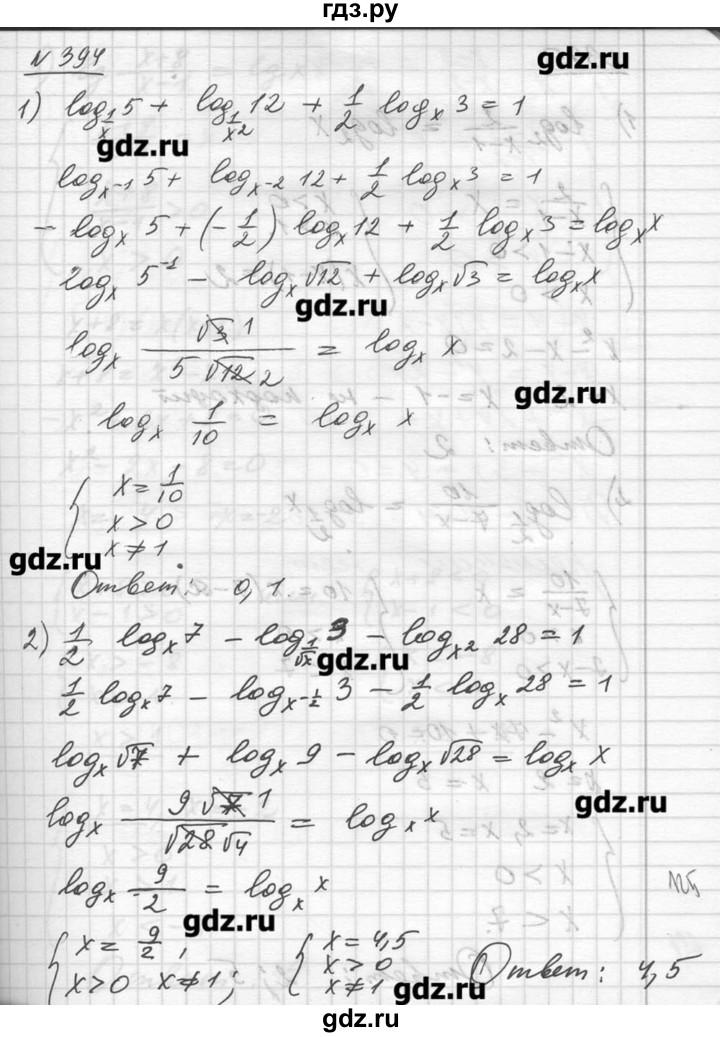 гдз.ру
№ 394
gdz.ru
1) log_{1/x} 5 + log_{1/x²} 12 + 1/2 log_x 3 = 1
gdz.ru
log_{x⁻¹} 5 + log_{x⁻²} 12 + 1/2 log_x 3 = 1
- log_x 5 + (-1/2) log_x 12 + 1/2 log_x 3 = log_x x
log_x 5⁻¹ - log_x √12 + log_x √3 = log_x x
gdz.ru
log_x (√3 1)/(5 √12 2) = log_x x
gdz.ru
log_x 1/10 = log_x x
{ x = 1/10
x > 0
gdz.ru
x ≠ 1.
Ответ: 0,1.
2) 1/2 log_x 7 - log_{1/√x} 3 - log_{x²} 28 = 1
gdz.ru
1/2 log_x 7 - log_{x^{-1/2}} 3 - 1/2 log_x 28 = 1
log_x √7 + log_x 9 - log_x √28 = log_x x
gdz.ru
log_x (9 √7 1)/(√28 √4) = log_x x
log_x 9/2 = log_x x
gdz.ru
{ x = 9/2 ; { x = 4,5
x > 0 x ≠ 1 ; x > 0 Ответ: 4,5
x ≠ 1
gdz.ru
gdz.ru